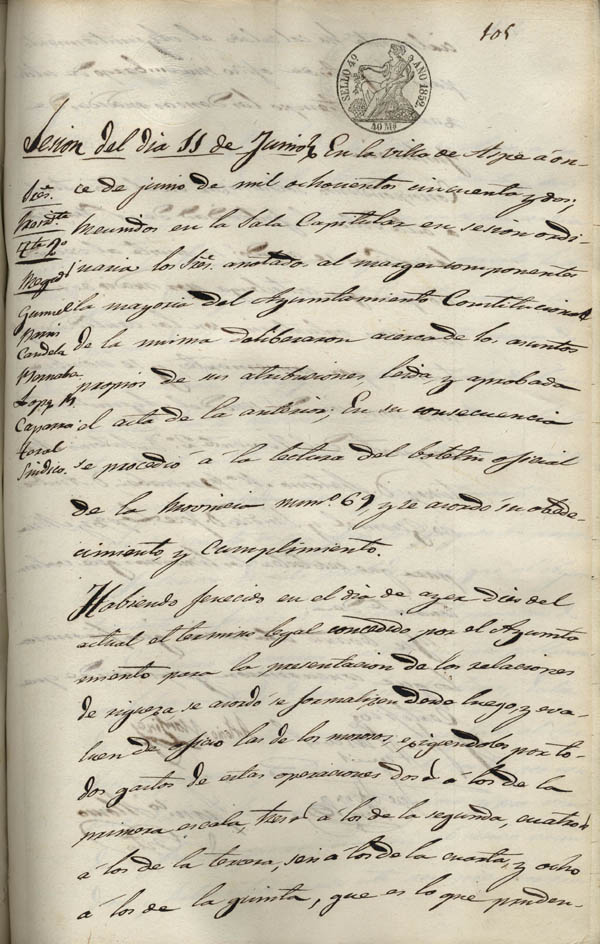 105
SELLO 4º AÑO 1852.
40 Ms
Sesion del dia 11 de Junio En la villa de Aspe á on-
Sres. ce de junio de mil ochocientos cincuenta y dos;
Reunidos en la Sala Capitular en sesion ordi-
naria los Sres. anotados al margen componentes
la mayoria del Ayuntamiento Constitucional
Candela de la misma deliberaron acerca de los asuntos
propios de sus atribuciones, leida, y aprobada
Caparros el acta de la anterior; En su consecuencia
Sindico. se procedió á la lectura del boletin oficial
de la Provincia num.º 69 y se acordó su obede-
cimiento, y cumplimiento.
Habiendo fenecido en el dia de ayer diez del
actual el termino legal concedido por el Ayunta
miento para la presentacion de las relaciones
de riqueza se acordó se formalizen desde luego y eva-
luen de oficio las de los morosos, exigiendoles por to-
dos gastos de estas operaciones dos á los de la
primera escala, tres á los de la segunda, cuatro
á los de la tercera, seis á los de la cuarta, y ocho
á los de la quinta, que es lo que pruden-